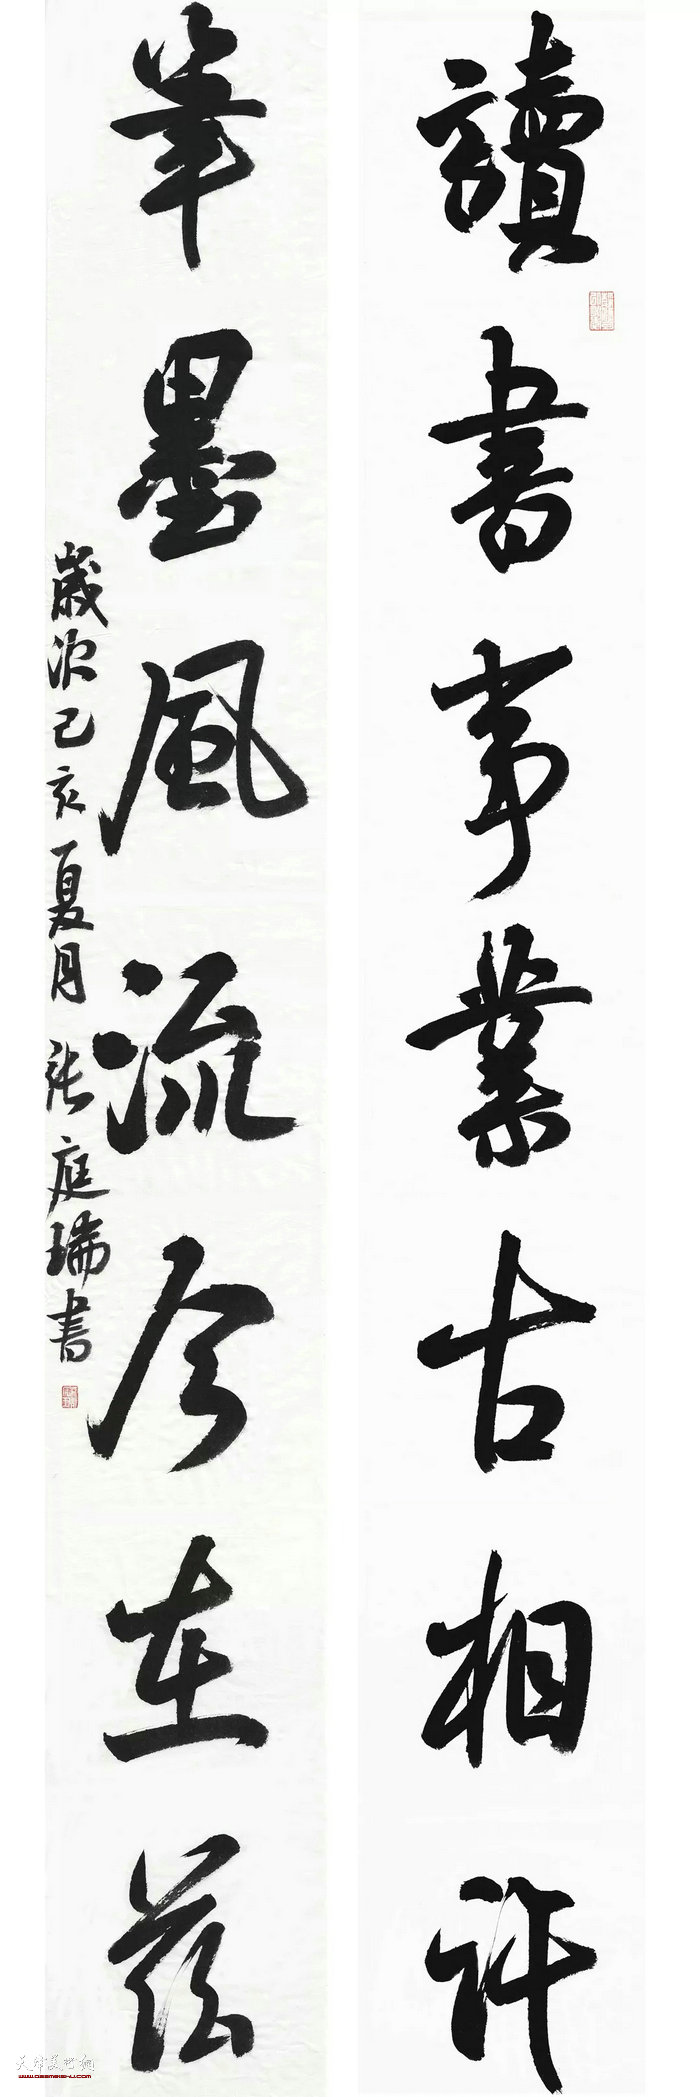 讀書事業古相許
筆墨風流今在茲
歲次己亥夏月 張庭瑞書
天津美术网